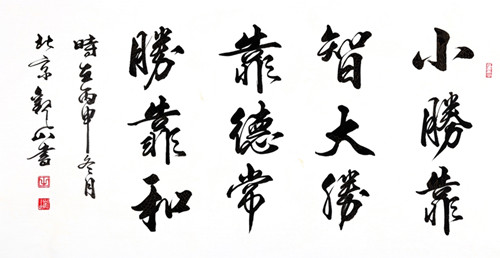 小勝靠
智大勝
靠德常
勝靠和
時在丙申冬月
北京観山書